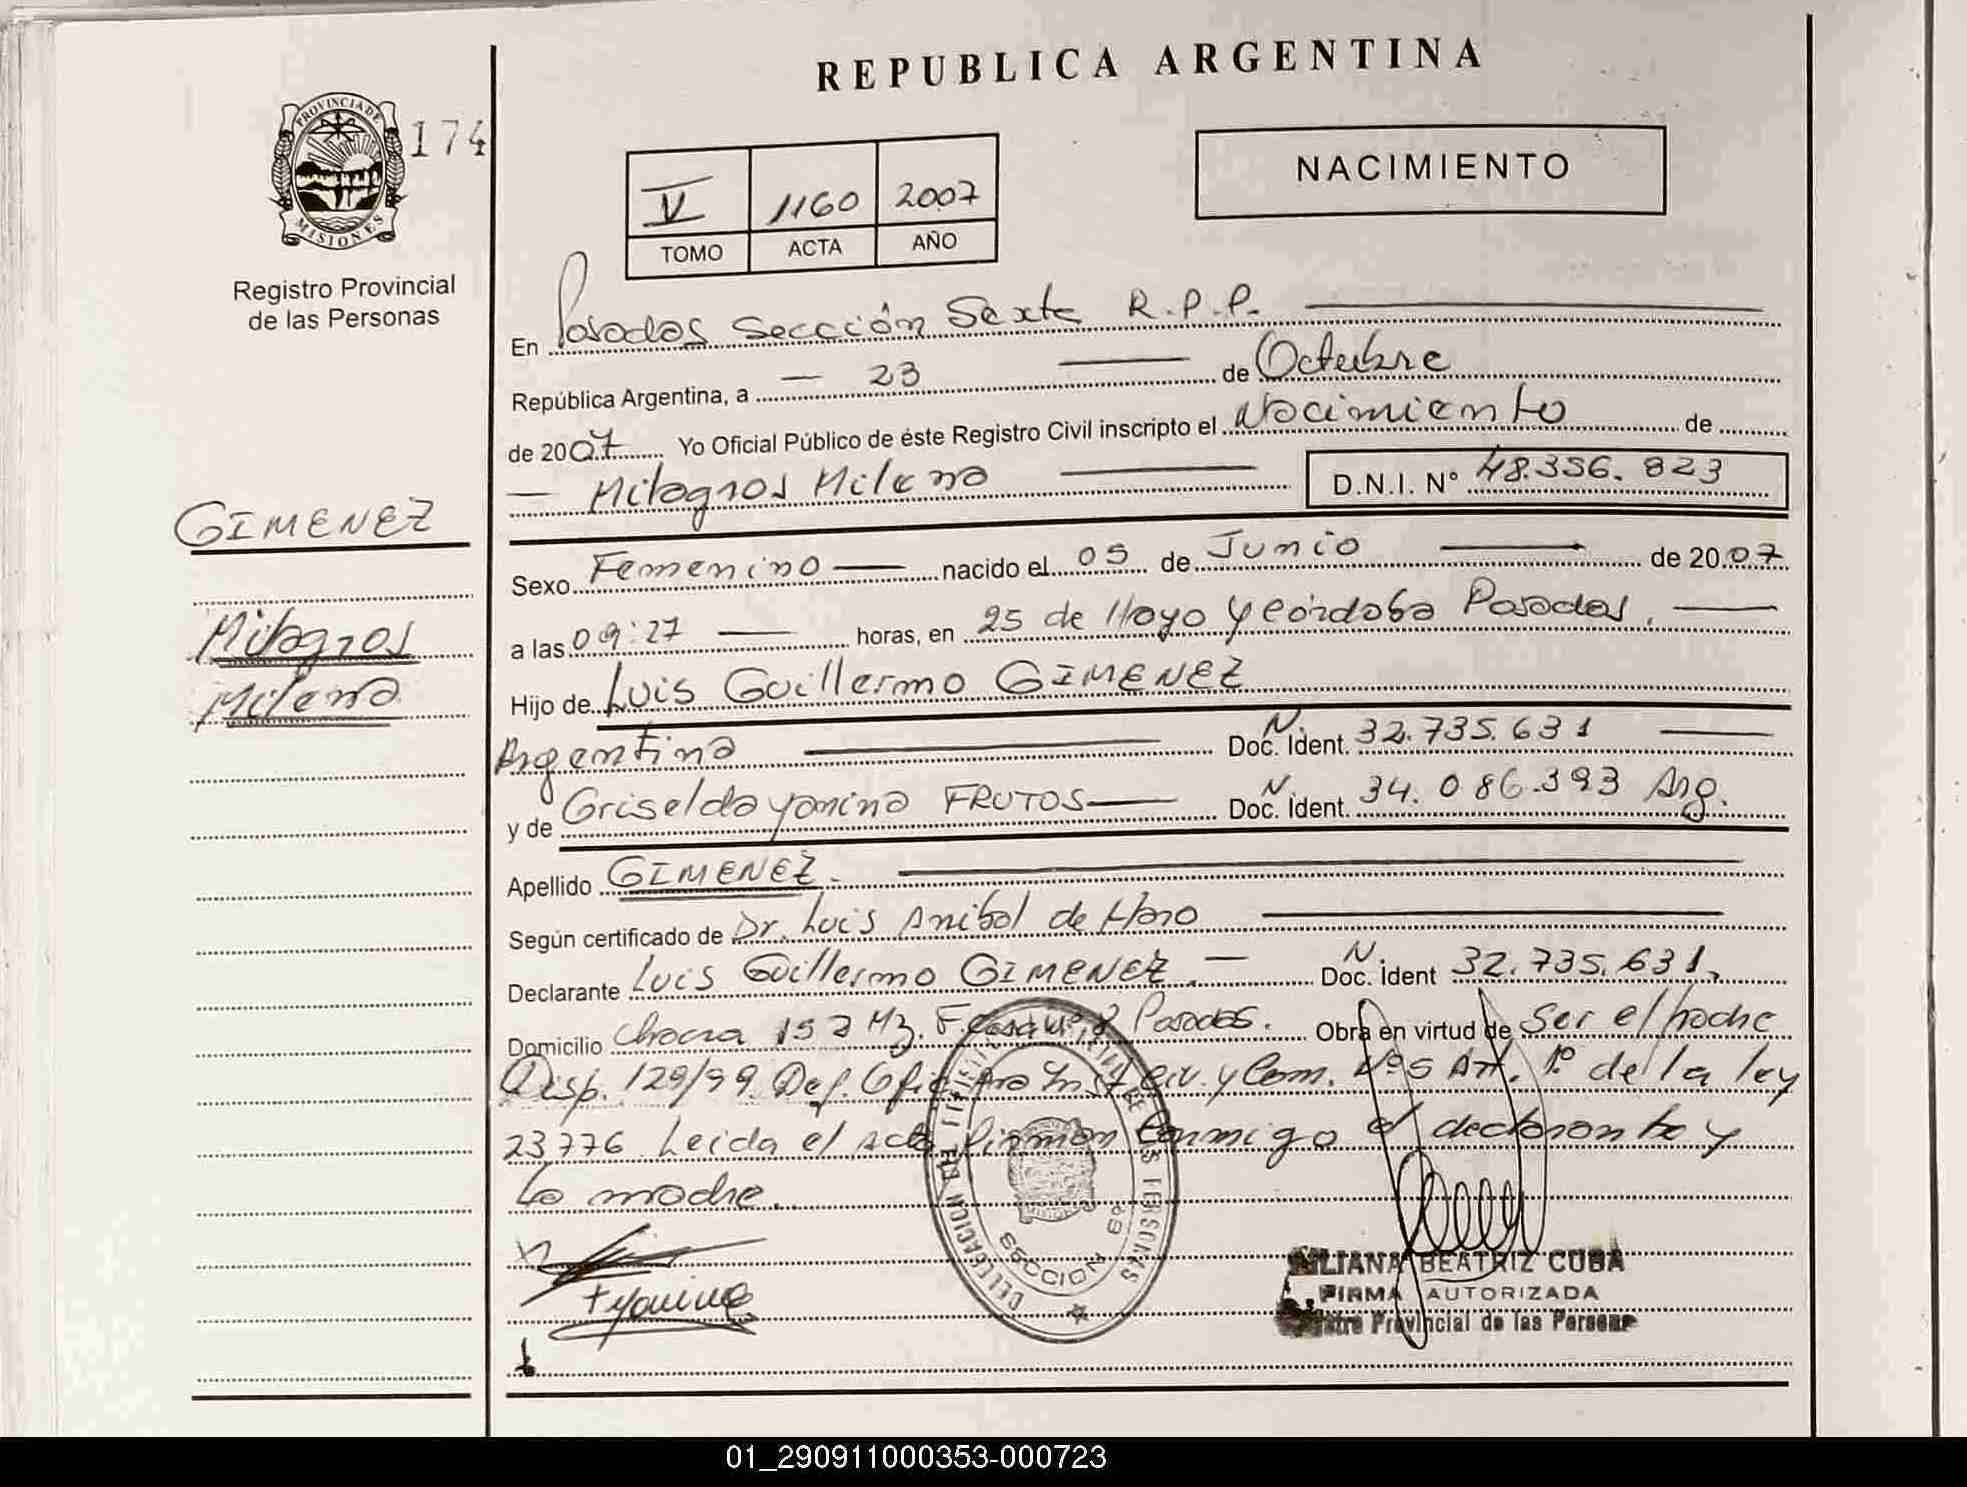 REPUBLICA ARGENTINA
PROVINCIA DE MISIONES
174
NACIMIENTO
V 1160 2007
TOMO ACTA AÑO
Registro Provincial
de las Personas
En Posadas Sección Sexta R.P.P.
República Argentina, a 23 de Octubre
de 2007 Yo Oficial Público de éste Registro Civil inscripto el Nacimiento de
Milagros Milena D.N.I. N° 48.356.823
GIMENEZ
Milagros
Milena
Sexo Femenino nacido el 05 de Junio de 2007
a las 09:27 horas, en 25 de Mayo y Córdoba Posadas,
Hijo de Luis Guillermo GIMENEZ
Argentina Doc. Ident. N. 32.735.631
y de Griselda Yanina FRUTOS Doc. Ident. N. 34.086.393 Arg.
Apellido GIMENEZ.
Según certificado de Dr. Luis Anibal de Haro
Declarante Luis Guillermo GIMENEZ. Doc. Ident N. 32.735.631,
Domicilio Chacra 152 Mz. F. Casa Posadas. Obra en virtud de Ser el padre
Disp. 129/99. Def. Ofic. Civ. y Com. N°5 Art. 1° de la ley
23776 Leida el Acta firman conmigo el declarante y
la madre.
Yanina
DELEGACION DEL REGISTRO PROVINCIAL DE LAS PERSONAS
SECCION
LILIANA BEATRIZ CUBA
FIRMA AUTORIZADA
Registro Provincial de las Personas
01_290911000353-000723